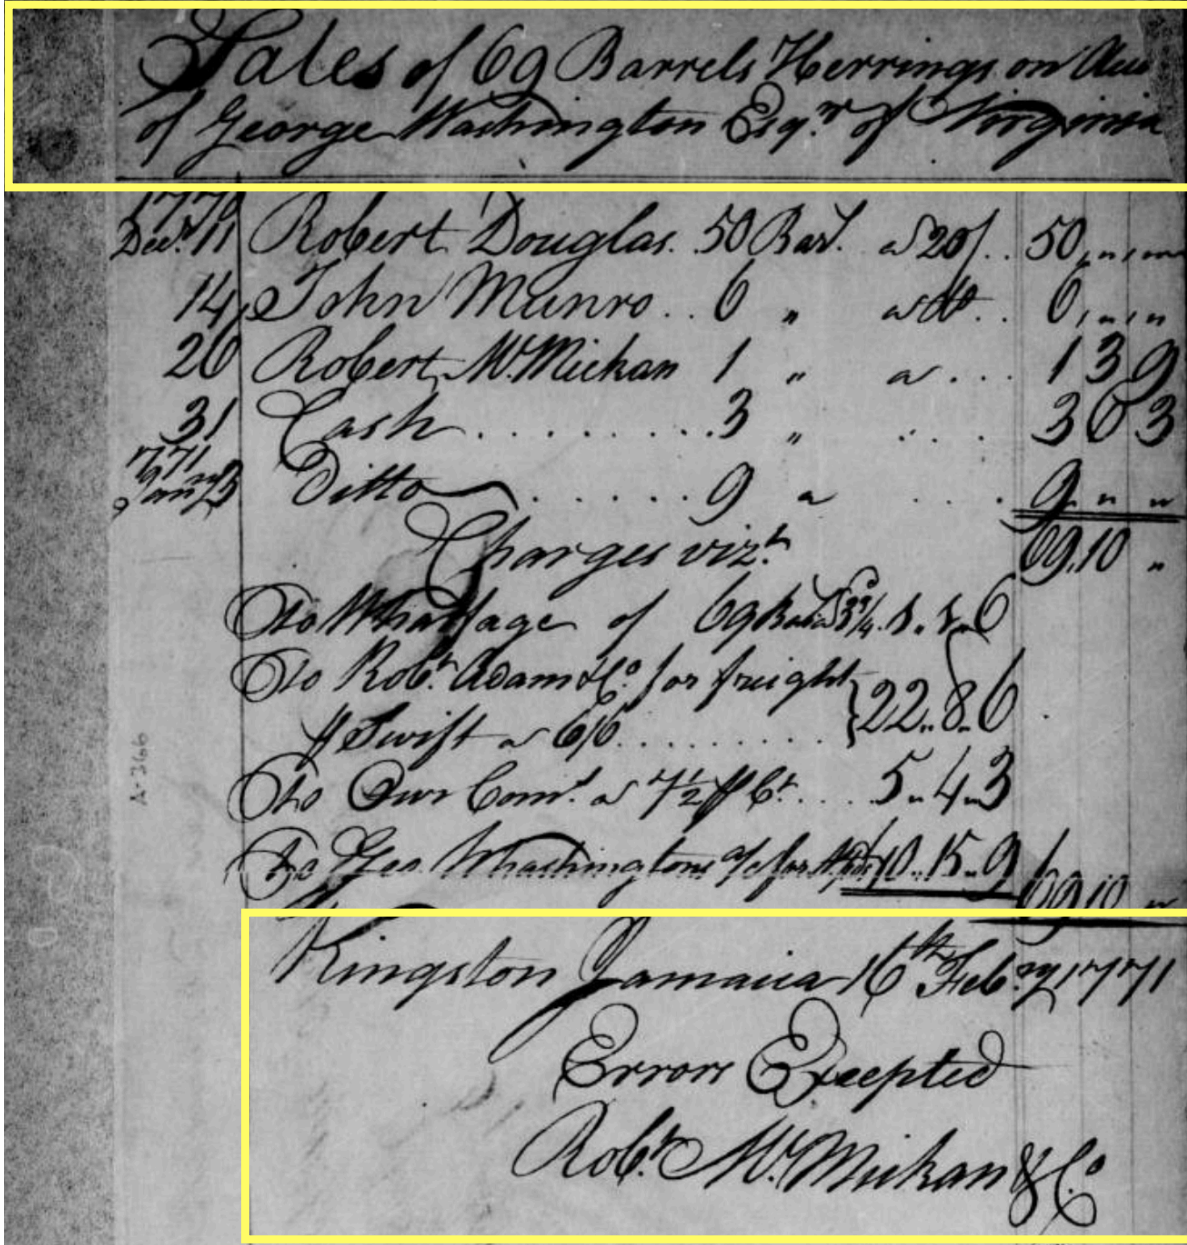 Sales of 69 Barrels Herrings on Acc
of George Washington Esq.r of Virginia
1770
Decr. 11 Robert Douglas. 50 Barl. a 20/.. 50,,,,
14 John Munro.. 6 " a ... 6,,,,
26 Robert McMickan 1 " a ... 1 3 9
31 Cash ......... 3 " .... 3 6 3
1771
Jany 3 Ditto ...... 9 a .... 9 " "
Charges vizt. 69.10 "
To Wharfage of 69 Barls a 3 3/4
To Robt. Adam & Co. for freight
p Swift a 6/6 ......... 22..8.6
To Our Comn. a 7 1/2 p Ct. ... 5..4..3
To Geo. Whashingtons a/c for 
69.10 "
A-366
Kingston Jamaica 16th Feby. 1771
Errors Excepted
Robt. Mc.Mickan & Co.